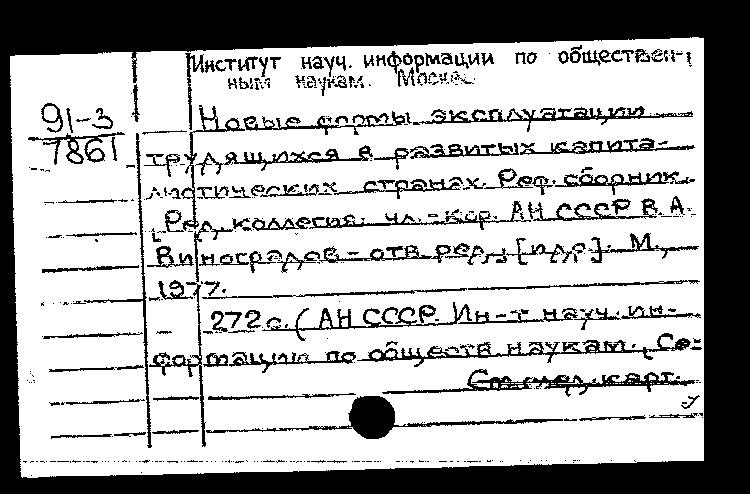 Институт науч. информации по обществен-
ным наукам. Москва
91-3
7861
Новые формы эксплуатации
трудящихся в развитых капита-
листических странах. Реф. сборник.
[Ред. коллегия: чл.-кор. АН СССР В. А.
Виноградов - отв. ред., [и др.]. М.,
1977.
272 с. (АН СССР. Ин-т науч. ин-
формации по обществ. наукам. [Се-
См. след. карт.